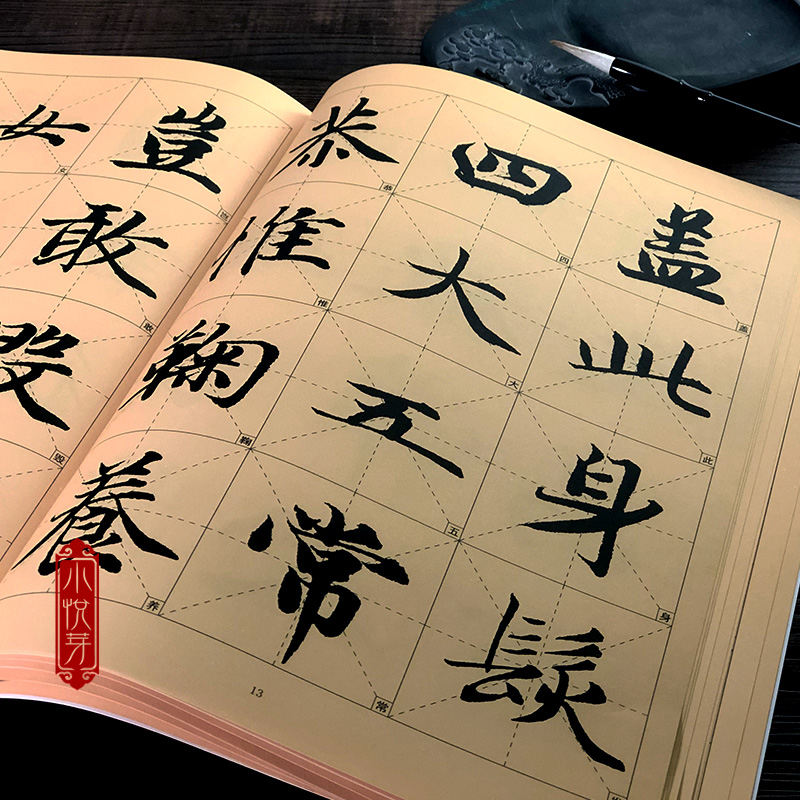 盖此身髮
四大五常
恭惟鞠養
豈敢毀
女
盖
此
身
四
大
五
常
恭
惟
鞠
养
岂
敢
毁
女
13
小悦芽